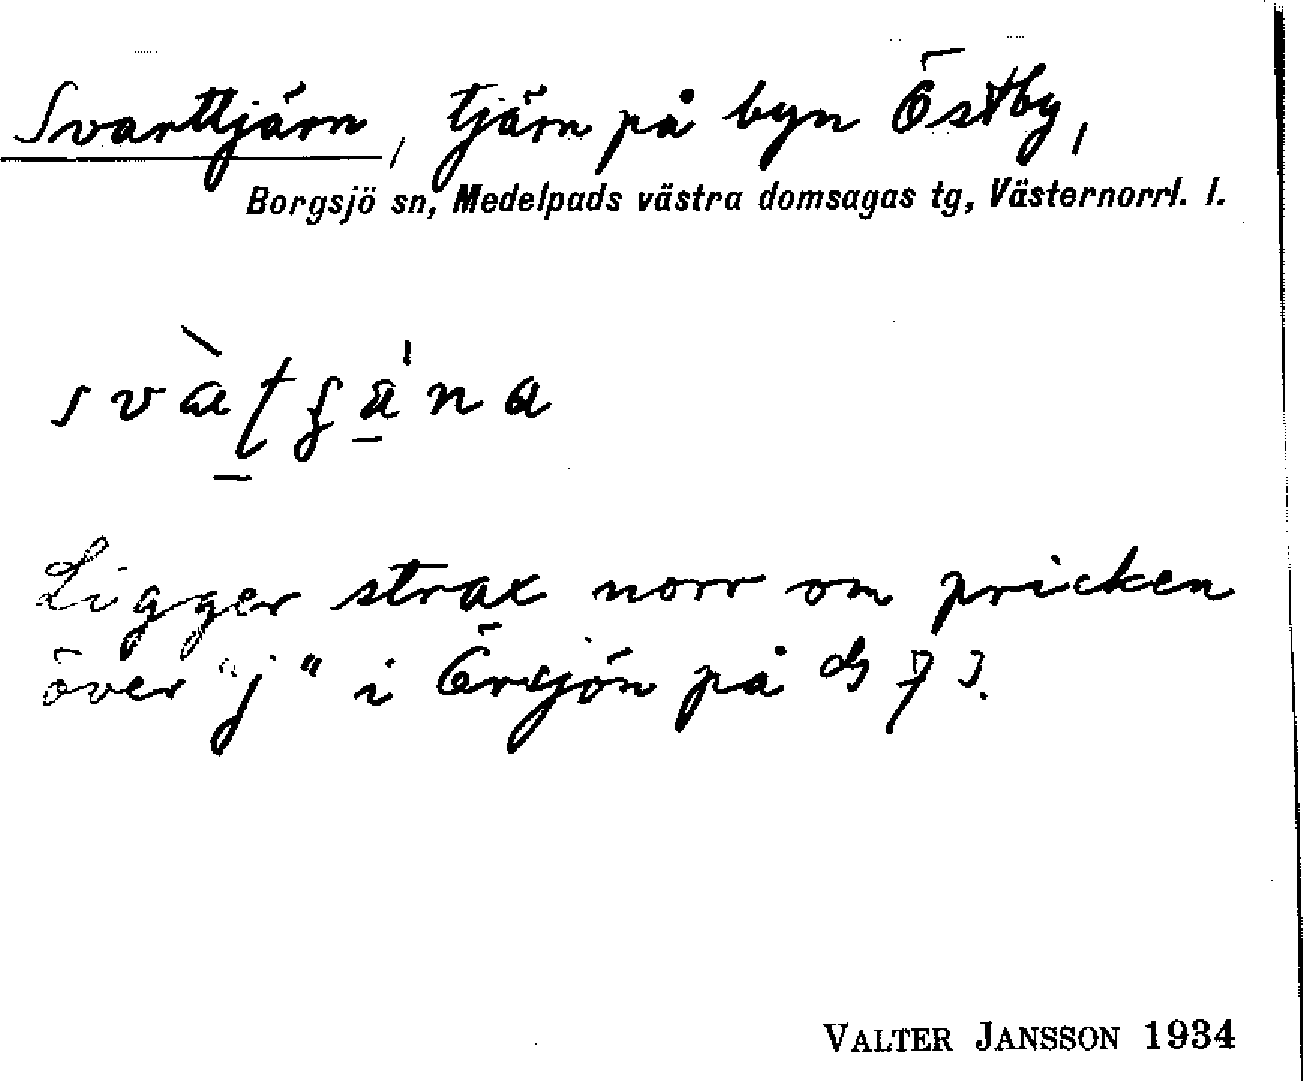 Svarttjärn, tjärn på byn Östby,
Borgsjö sn, Medelpads västra domsagas tg, Västernorrl. l.
Ligger strax norr om pricken
över "j" i Örasjön på
VALTER JANSSON 1934